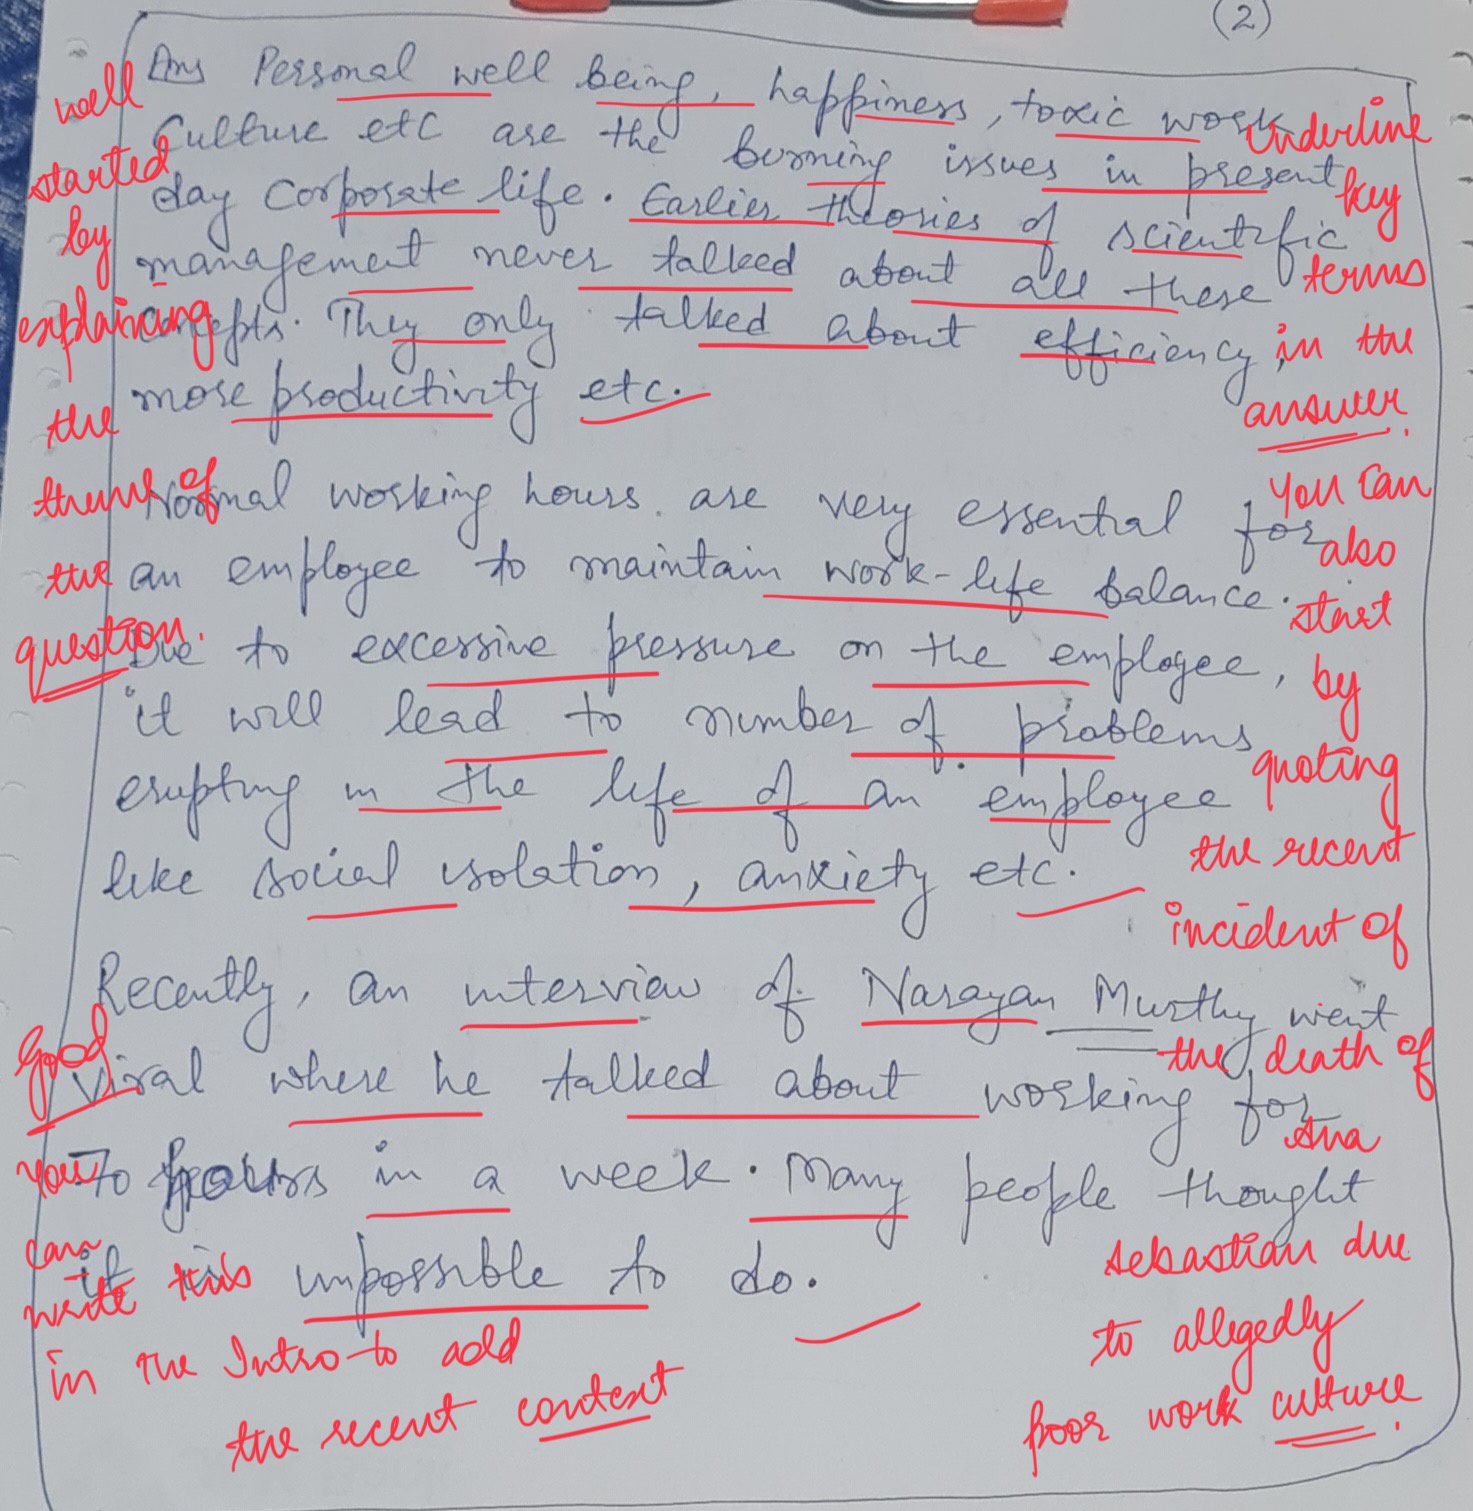 (2)
Ans Personal well being, happiness, toxic work
Culture etc are the burning issues in present
day Corporate life. Earlier theories of scientific
management never talked about all these
concepts. They only talked about efficiency,
more productivity etc.
Normal working hours are very essential for
an employee to maintain work-life balance.
Due to excessive pressure on the employee,
it will lead to number of problems
erupting in the life of an employee
like social isolation, anxiety etc.
Recently, an interview of Narayan Murthy went
viral where he talked about working for
70 hours in a week. Many people thought
it is impossible to do.
well
started
by
explaining
the
theme of
the
question.
Good
you
can
write this
in the Intro to add
the recent context
Underline
key
terms
in the
answer.
You can
also
start
by
quoting
the recent
incident of
the death of
Ana
sebastian due
to allegedly
poor work culture.